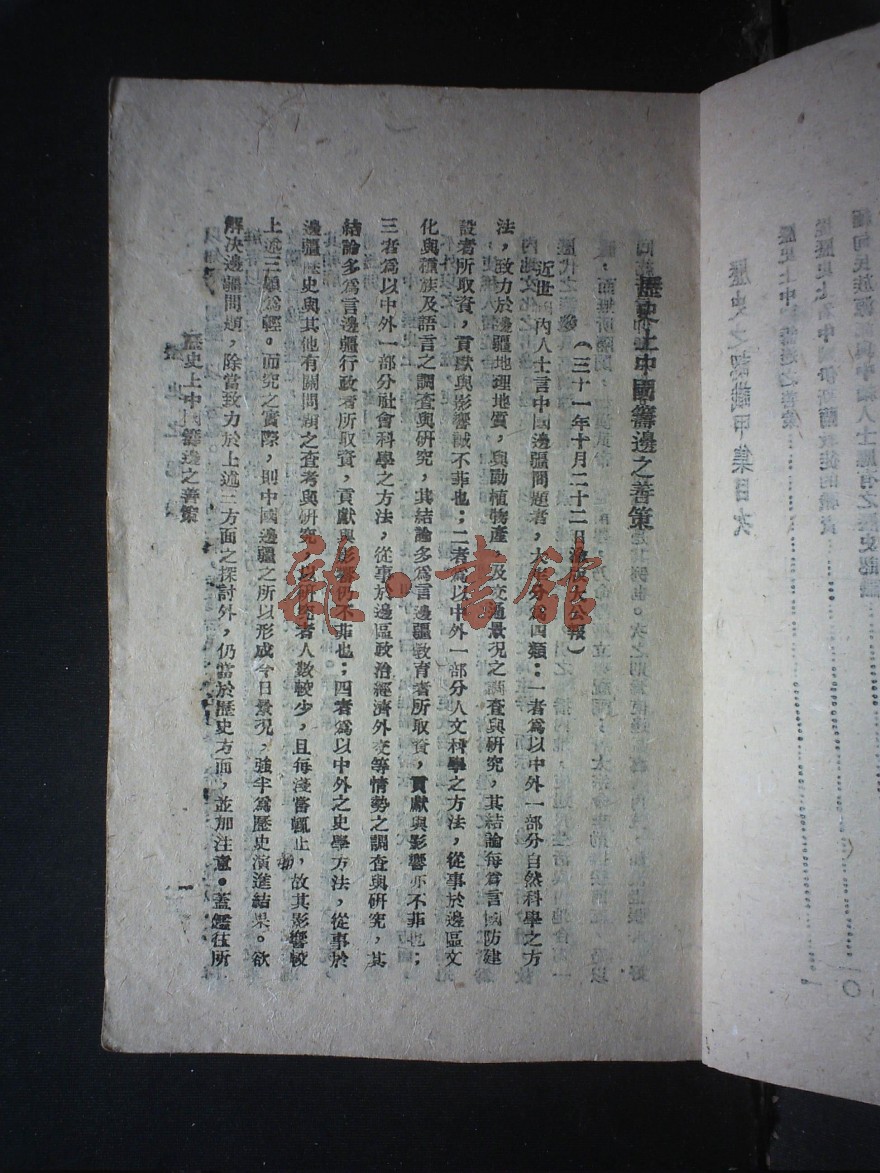 歷史之認識甲集目次
歷史上中國籌邊之善策………1
從歷史上看中
緬甸民族源
人士應有之歷史認識
歷史上中國籌邊之善策
（三十一年十月二十二日
大公報）
近世
內人士言中國邊疆問題者，大
分為四類：一者為以中外一部分自然科學之方
法，致力於邊疆地理地質，與動植物產，及交通景况之調查與研究，其結論每為言國防建
設者所取資，貢獻與影響誠不菲也；二者為以中外一部分人文科學之方法，從事於邊區文
化與種族及語言之調查與研究，其結論多為言邊疆教育者所取資，貢獻與影響亦不菲也；
三者為以中外一部分社會科學之方法，從事於邊區政治經濟外交等情勢之調查與研究，其
結論多為言邊疆行政者所取資，貢獻與影響仍不菲也；四者為以中外之史學方法，從事於
邊疆歷史與其他有關問題之查考與研究，以研究者人數較少，且每淺嘗輒止，故其影響較
上述三類為輕。而究之實際，則中國邊疆之所以形成今日景况，強半為歷史演進結果。欲
解决邊疆問題，除當致力於上述三方面之探討外，仍當於歷史方面，並加注意。蓋鑑往所
歷史上中國籌邊之善策
一
雜·書館